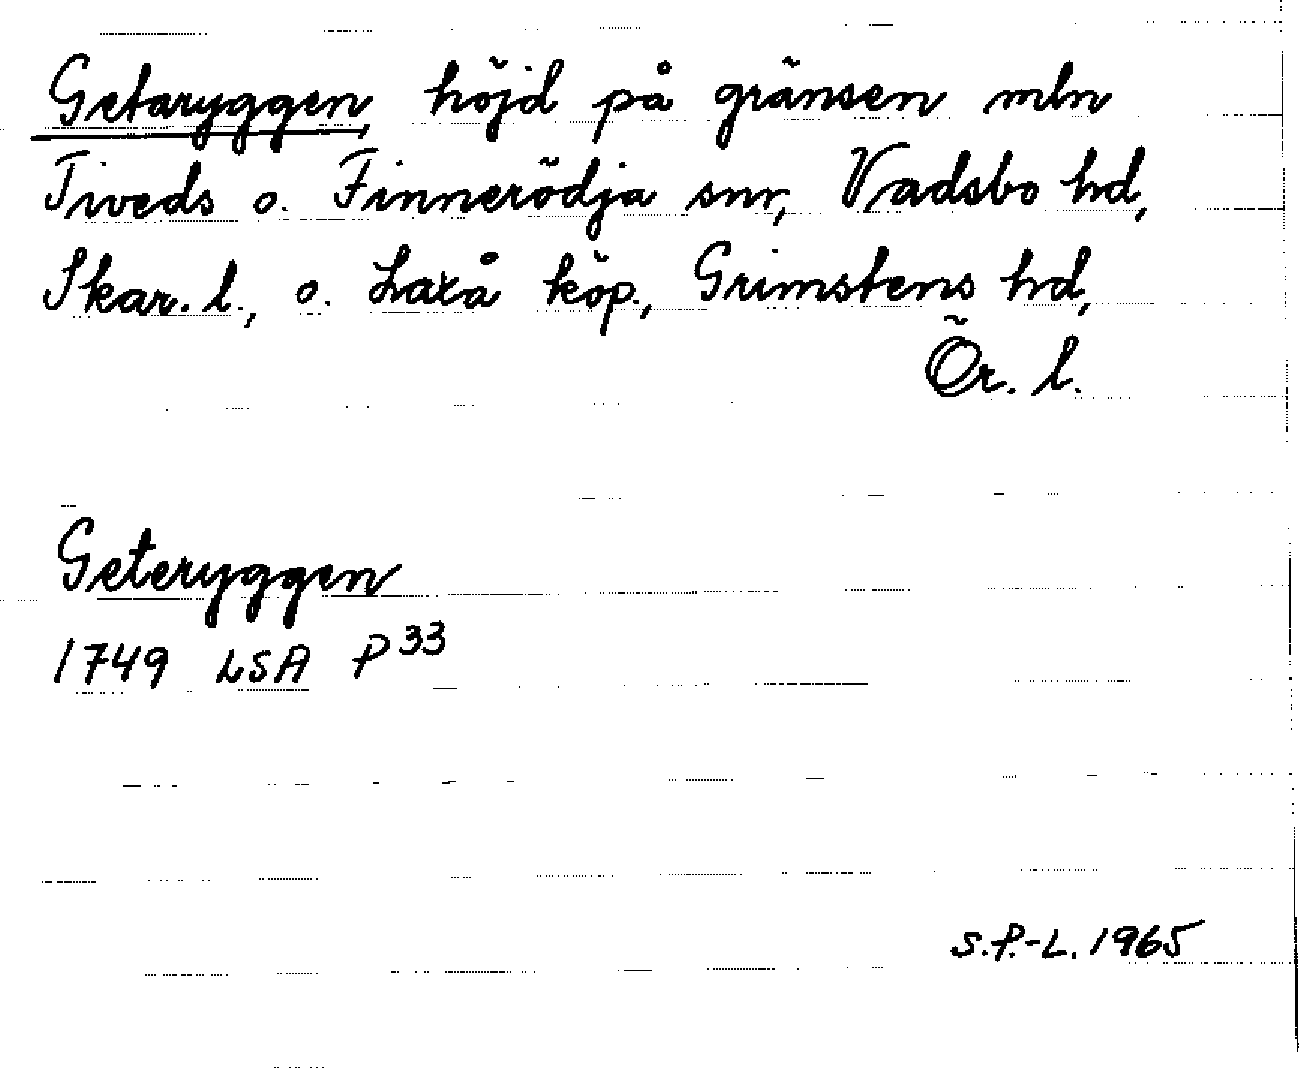 Getaryggen, höjd på gränsen mln
Tiveds o. Finnerödja snr, Vadsbo hd,
Skar. l., o. Laxå köp., Grimstens hd,
Ör. l.
Geteryggen
1749 LSA P 33
S.P.-L. 1965